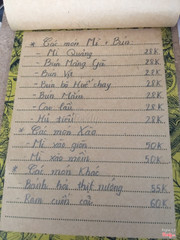 * Các món Mì + Bún
- Mì Quảng 28K
- Bún Măng Gà 28K
- Bún Vịt 28K
- Bún bò Huế chay 28K
- Bún Mắm 28K
- Cao lầu 28K
- Hủ tiếu 28K
* Các món Xào
- Mì xào giòn 50K
- Mì xào mềm 50K
* Các món Khác
- Bánh hỏi thịt nướng 55K
- Ram cuốn cải 60K